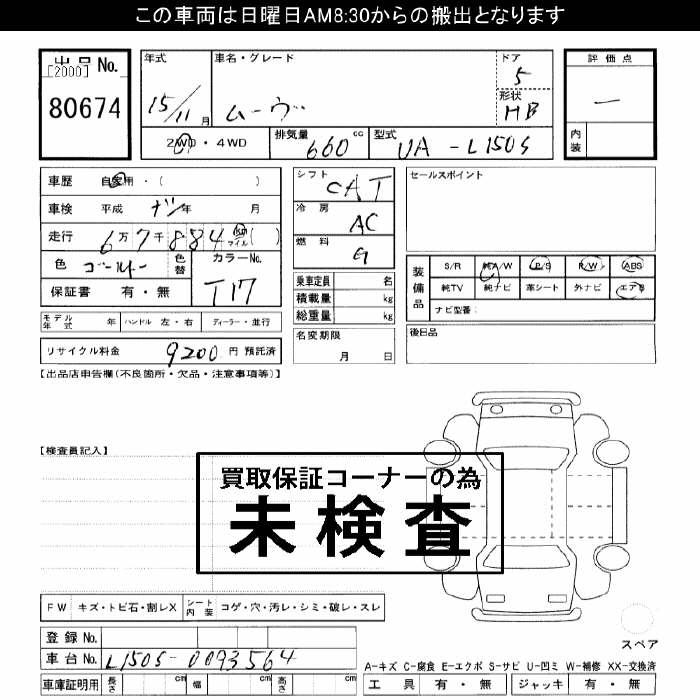 この車両は日曜日AM8:30からの搬出となります
出品No.
[2000]
80674
年式
15/11月
車名・グレード
ムーヴ
ドア
5
形状
HB
2WD・4WD
排気量
660cc
型式
UA-L150S
評価点
一
内装
車歴 自家用・( )
車検 平成 ナシ年 月
走行 6万7千884km マイル( )
色 ゴールド
色替
カラーNo.
T17
保証書 有・無
モデル年式 年 ハンドル 左・右 ディーラー・並行
リサイクル料金 9200 円 預託済
シフト
CAT
冷房
AC
燃料
G
乗車定員 名
積載量 kg
総重量 kg
名変期限
月 日
セールスポイント
装備品
S/R 純A/W P/S R/W ABS
純TV 純ナビ 革シート 外ナビ エアB
ナビ型番:
後日品
【出品店申告欄(不良箇所・欠品・注意事項等)】
【検査員記入】
買取保証コーナーの為
未検査
FW キズ・トビ石・割レX シート内装 コゲ・穴・汚レ・シミ・破レ・スレ
登録No.
車台No. L150S-0093564
車庫証明用 長さ cm 幅 cm 高さ cm
スペア
A-キズ C-腐食 E-エクボ S-サビ U-凹ミ W-補修 XX-交換済
工具 有・無 ジャッキ 有・無